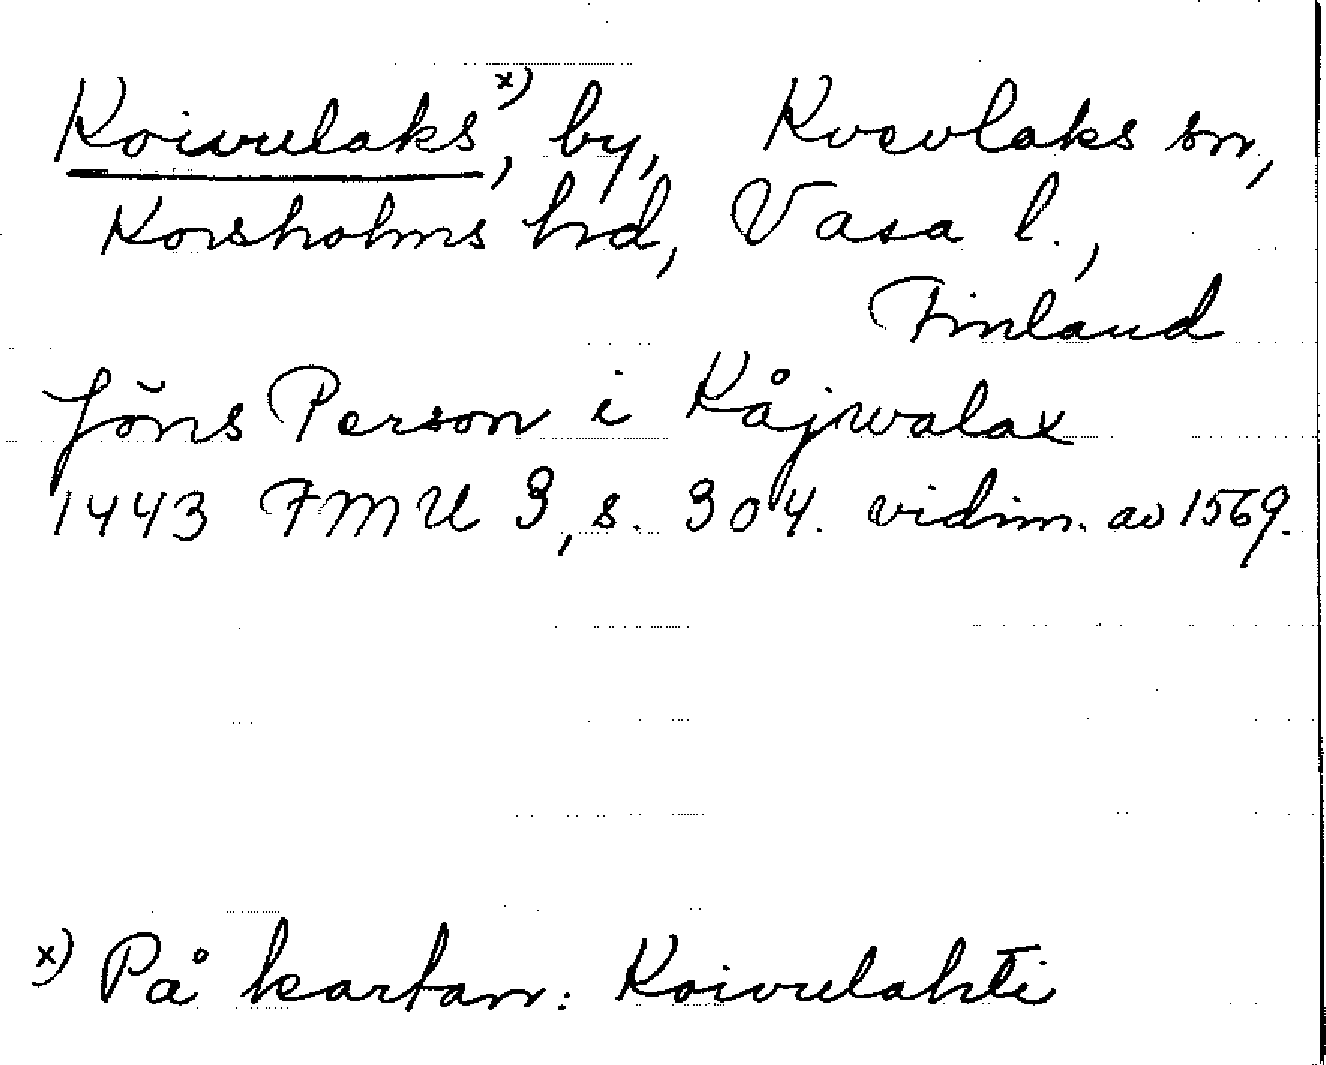 Koivulaks x), by, Kvevlaks sn,
Korsholms hd, Vasa l.,
Finland
Jöns Person i Kåjwalax
1443 FMU 3, s. 304. vidim. av 1569.
x) På kartan: Koivulahti